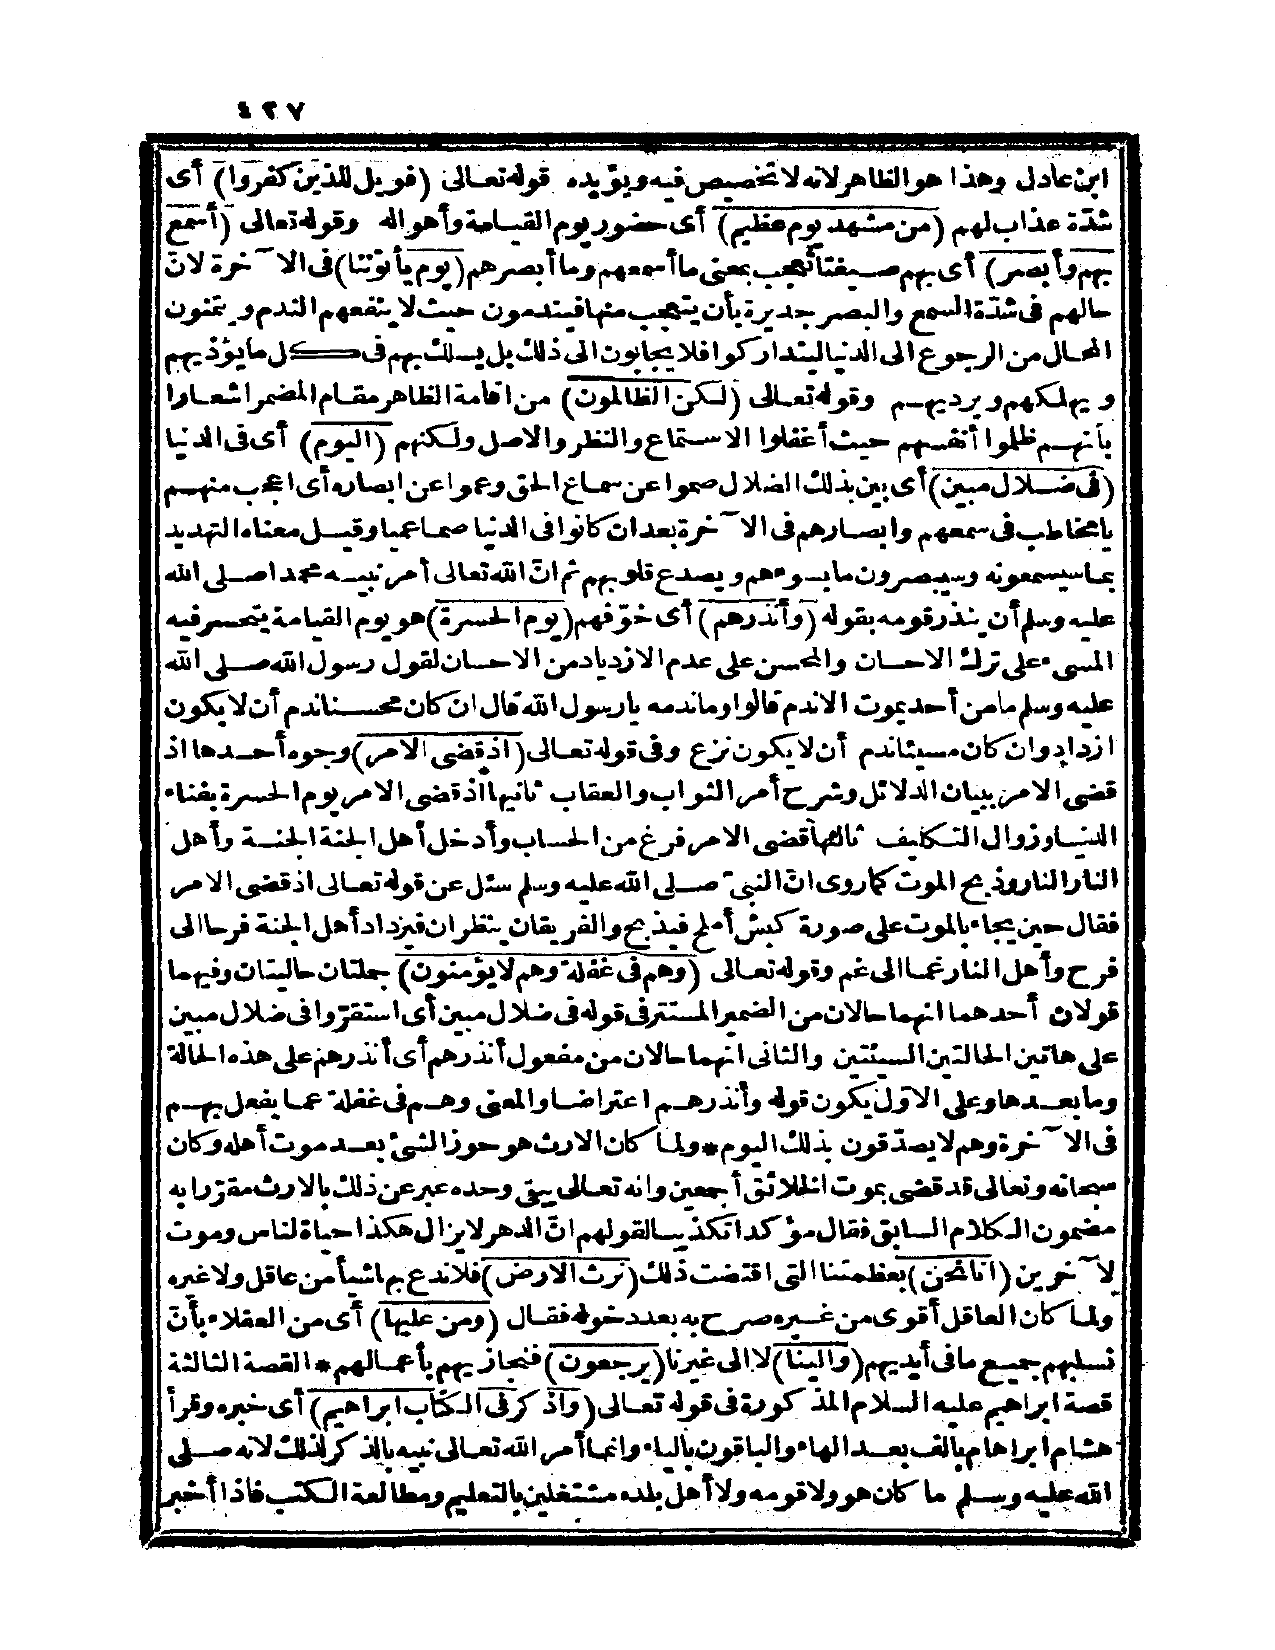 ٤٢٧
ابن عادل وهذا هو الظاهر لانه لا تخصيص فيه ويؤيده قوله تعالى (فويل للذين كفروا) أى
شدّة عذاب لهم (من مشهد يوم عظيم) أى حضور يوم القيامة وأهواله وقوله تعالى (أسمع
بهم وأبصر) أى بهم صيغتا تعجب بمعنى ما أسمعهم وما أبصرهم (يوم يأتوننا) فى الآخرة لانّ
حالهم فى شدّة السمع والبصر جديرة بأن يتعجب منها فيندمون حيث لا ينفعهم الندم ويتمنون
المحال من الرجوع الى الدنيا ليتداركوا فلا يجابون الى ذلك بل يسلك بهم فى كل ما يؤذيهم
ويهلكهم ويرديهم وقوله تعالى (لكن الظالمون) من اقامة الظاهر مقام المضمر اشعارا
بأنهم ظلموا أنفسهم حيث أغفلوا الاستماع والنظر والاصل ولكنهم (اليوم) أى فى الدنيا
(فى ضلال مبين) أى بين بذلك الضلال صموا عن سماع الحق وعموا عن ابصاره أى اعجب منهم
يا مخاطب فى سمعهم وابصارهم فى الآخرة بعد ان كانوا فى الدنيا صما عميا وقيل معناه التهديد
بما سيسمعونه وسيبصرون ما يسوءهم ويصدع قلوبهم ثم انّ الله تعالى أمر نبيه محمدا صلى الله
عليه وسلم أن ينذر قومه بقوله (وأنذرهم) أى خوّفهم (يوم الحسرة) هو يوم القيامة يتحسر فيه
المسىء على ترك الاحسان والمحسن على عدم الازدياد من الاحسان لقول رسول الله صلى الله
عليه وسلم ما من أحد يموت الا ندم قالوا وما ندمه يا رسول الله قال ان كان محسنا ندم أن لا يكون
ازداد وان كان مسيئا ندم أن لا يكون نزع وفى قوله تعالى (اذ قضى الامر) وجوه أحدها اذ
قضى الامر ببيان الدلائل وشرح أمر الثواب والعقاب ثانيها اذ قضى الامر يوم الحسرة بفناء
الدنيا وزوال التكليف ثالثها قضى الامر فرغ من الحساب وأدخل أهل الجنة الجنة وأهل
النار النار وذبح الموت كما روى انّ النبىّ صلى الله عليه وسلم سئل عن قوله تعالى اذ قضى الامر
فقال حين يجاء بالموت على صورة كبش أملح فيذبح والفريقان ينظران فيزداد أهل الجنة فرحا الى
فرح وأهل النار غما الى غم وقوله تعالى (وهم فى غفلة وهم لا يؤمنون) جملتان حاليتان وفيهما
قولان أحدهما انهما حالان من الضمير المستتر فى قوله فى ضلال مبين أى استقرّوا فى ضلال مبين
على هاتين الحالتين السيئتين والثانى انهما حالان من مفعول أنذرهم أى أنذرهم على هذه الحالة
وما بعدها وعلى الاوّل يكون قوله وأنذرهم اعتراضا والمعنى وهم فى غفلة عما يفعل بهم
فى الآخرة وهم لا يصدّقون بذلك اليوم * ولما كان الارث هو حوز الشىء بعد موت أهله وكان
سبحانه وتعالى قد قضى بموت الخلائق أجمعين وانه تعالى يبقى وحده عبر عن ذلك بالارث مقرّرا به
مضمون الكلام السابق فقال مؤكدا تكذيبا لقولهم انّ الدهر لا يزال هكذا حياة لناس وموت
لآخرين (انا نحن) بعظمتنا التى اقتضت ذلك (نرث الارض) فلا ندع بها شيأ من عاقل ولا غيره
ولما كان العاقل أقوى من غيره صرح به بعد دخوله فقال (ومن عليها) أى من العقلاء بأنّ
نسلبهم جميع ما فى أيديهم (والينا) لا الى غيرنا (يرجعون) فنجازيهم بأعمالهم * القصة الثالثة
قصة ابراهيم عليه السلام المذكورة فى قوله تعالى (واذكر فى الكتاب ابراهيم) أى خبره وقرأ
هشام ابراهام بالف بعد الهاء والباقون بالياء وانما أمر الله تعالى نبيه بالذكر لذلك لانه صلى
الله عليه وسلم ما كان هو ولا قومه ولا أهل بلده مشتغلين بالتعليم ومطالعة الكتب فاذا أخبر